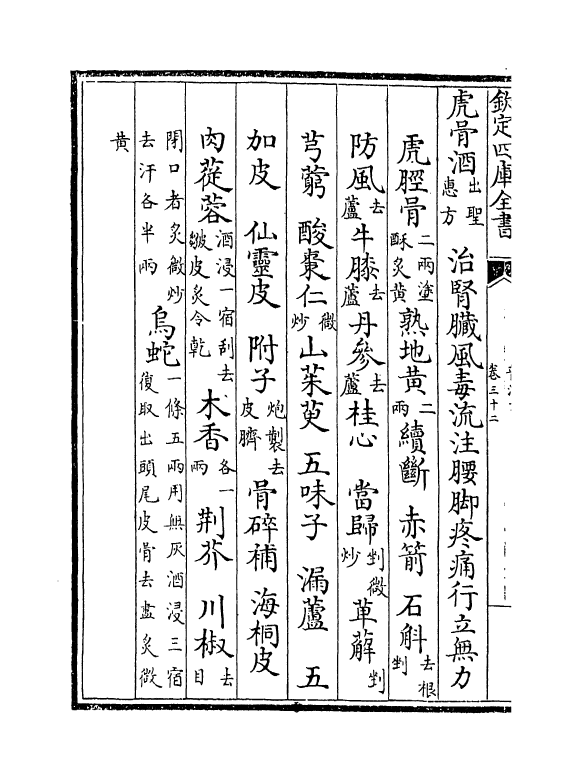 欽定四庫全書
卷三十二
虎骨酒出聖惠方 治腎臟風毒流注腰脚疼痛行立無力
虎脛骨二兩塗酥炙黄 熟地黄二兩 續斷 赤箭 石斛去根剉
防風去蘆 牛膝去蘆 丹參去蘆 桂心 當歸剉微炒 萆薢剉
芎藭 酸棗仁微炒 山茱萸 五味子 漏蘆 五
加皮 仙靈皮 附子炮製去皮臍 骨碎補 海桐皮
肉蓯蓉酒浸一宿刮去皺皮炙令乾 木香各一兩 荆芥 川椒去目
閉口者炙微炒去汗各半兩 烏蛇一條五兩用無灰酒浸三宿復取出頭尾皮骨去盡炙微
黄